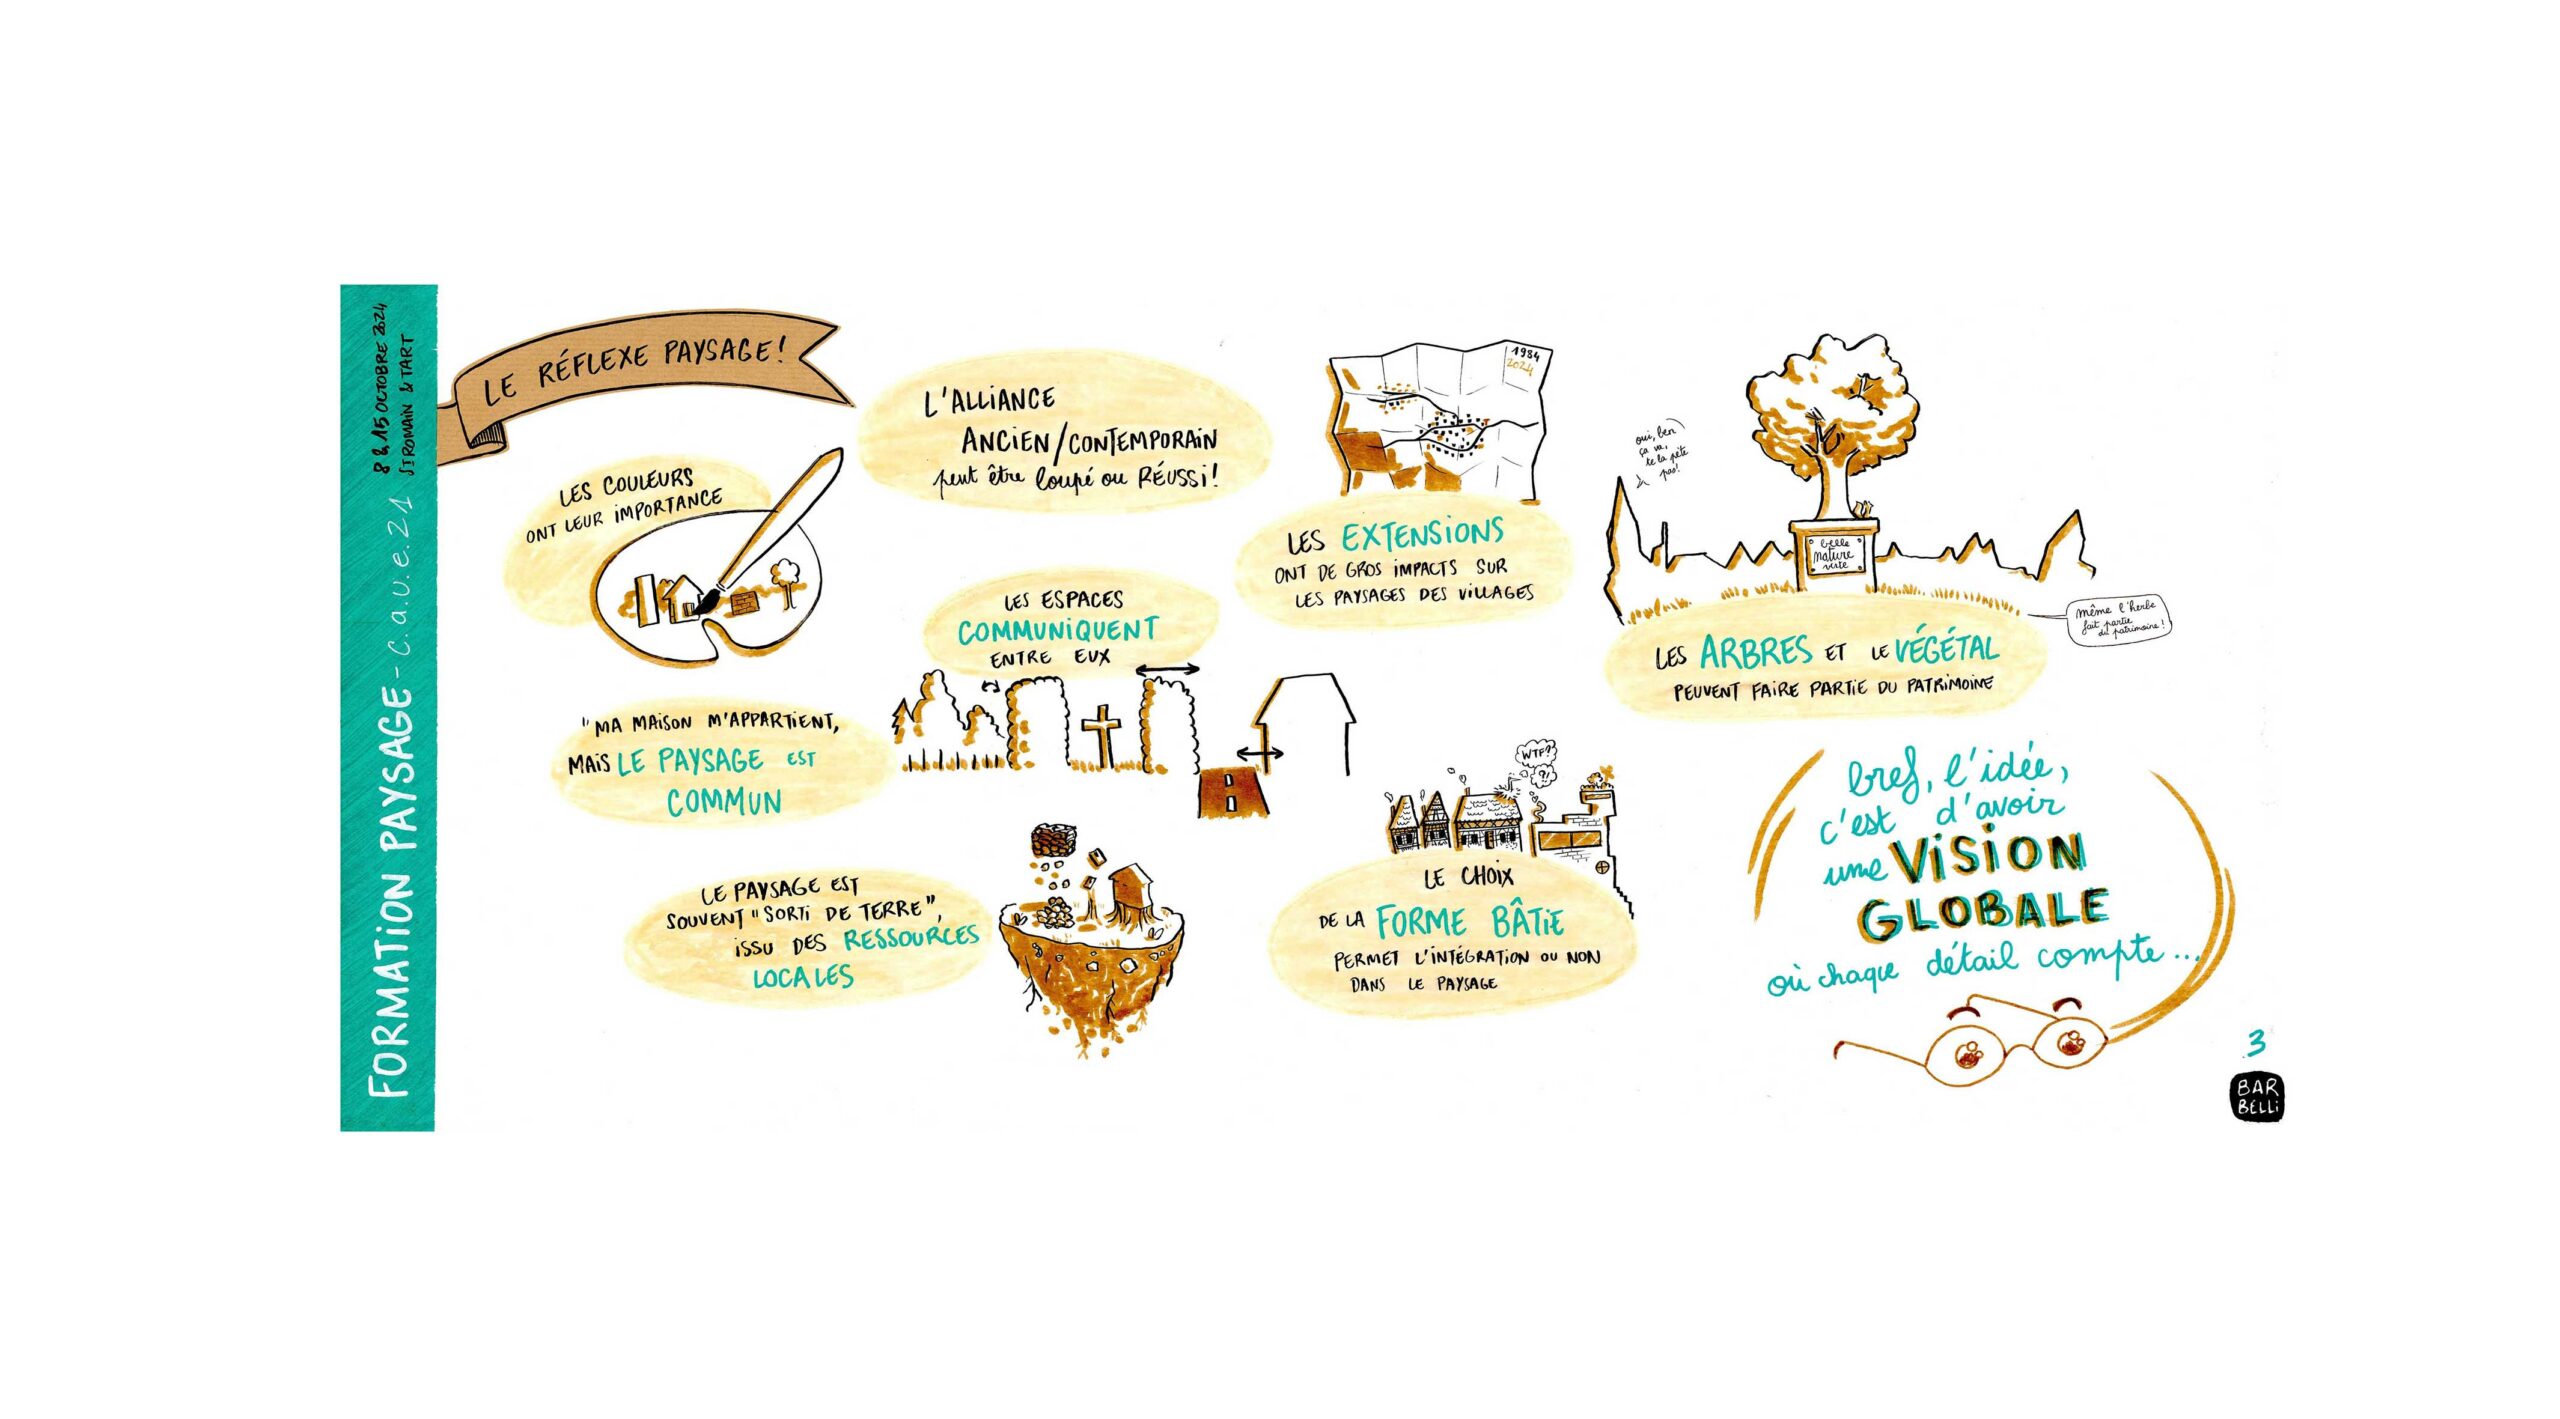 FORMATION PAYSAGE - c.a.u.e.21
8 & 15 OCTOBRE 2024
ST ROMAIN & TART
LE RÉFLEXE PAYSAGE!
LES COULEURS
ONT LEUR IMPORTANCE
"MA MAISON M'APPARTIENT,
MAIS LE PAYSAGE EST
COMMUN
LE PAYSAGE EST
SOUVENT "SORTI DE TERRE",
ISSU DES RESSOURCES
LOCALES
L'ALLIANCE
ANCIEN/CONTEMPORAIN
peut être loupé ou RÉUSSI!
LES ESPACES
COMMUNIQUENT
ENTRE EUX
1984
2024
LES EXTENSIONS
ONT DE GROS IMPACTS SUR
LES PAYSAGES DES VILLAGES
WTF?
?!
LE CHOIX
DE LA FORME BÂTIE
PERMET L'INTÉGRATION OU NON
DANS LE PAYSAGE
oui, ben
ça va,
te la pète
pas!
belle
nature
verte
même l'herbe
fait partie
du patrimoine!
LES ARBRES ET LE VÉGÉTAL
PEUVENT FAIRE PARTIE DU PATRIMOINE
bref, l'idée,
c'est d'avoir
une VISION
GLOBALE
où chaque détail compte...
3
BAR
BELLI